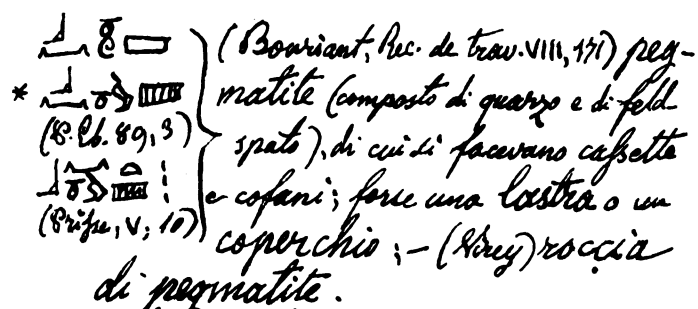 (Bouriant, Rec. de trav. VIII, 171) peg-
* matite (composto di quarzo e di feld
(P. Eb. 89, 3) spato), di cui si facevano cassette
e cofani; forse una lastra o un
(Prisse, V, 10) coperchio; – (Virey) roccia
di pegmatite.